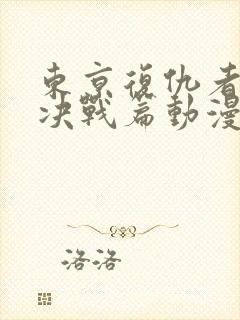 東京復仇者
決戰篇動漫
洛洛